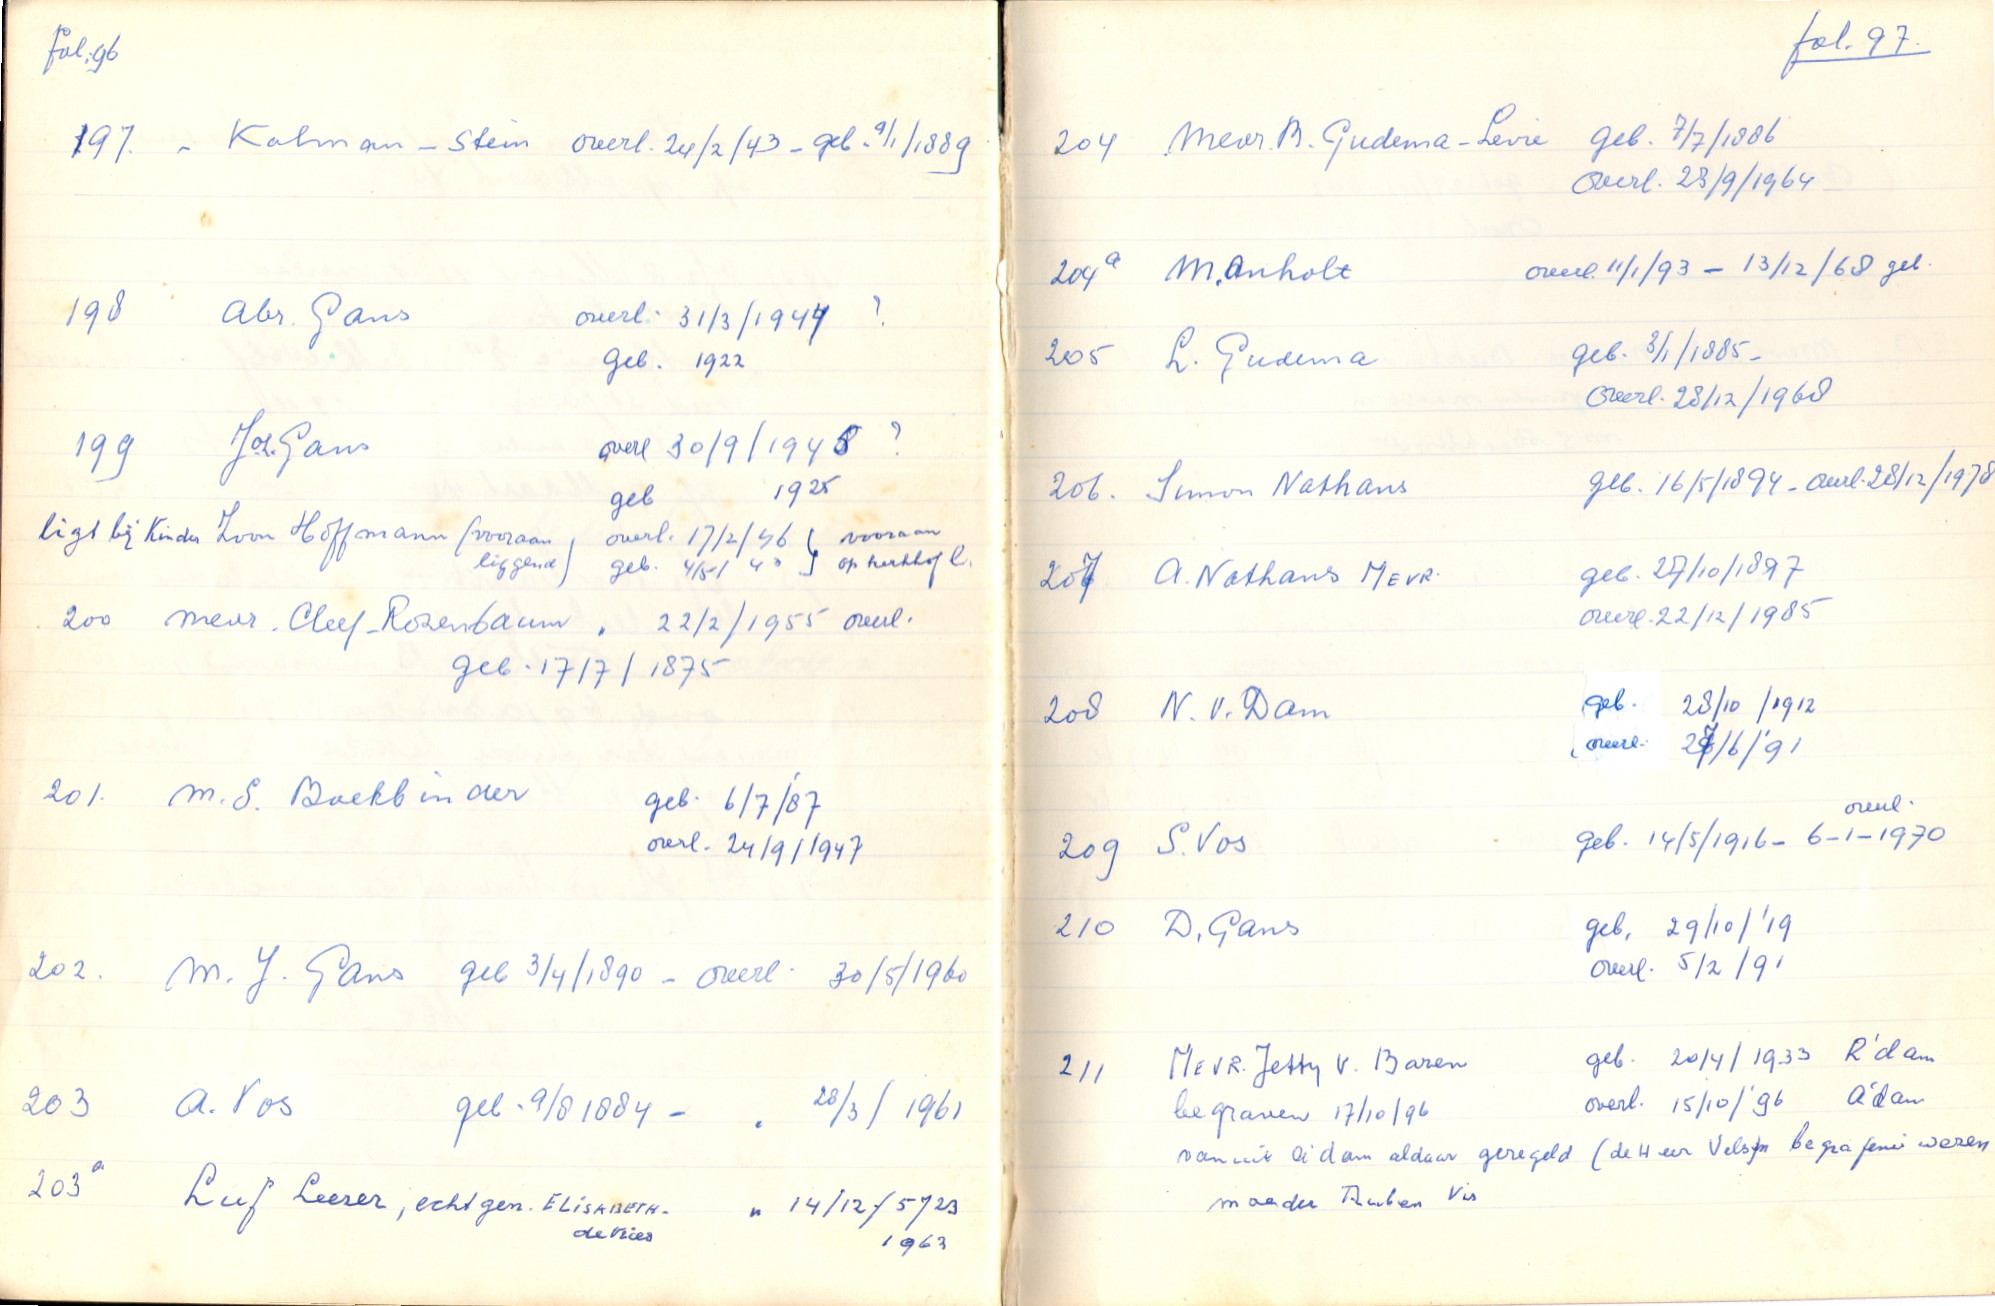 fol. 96
197. - Kalman - Stein overl. 24/2/43 - geb. 9/1/1889
198 Abr. Gans overl. 31/3/1944 ?
geb. 1922
199 Joz. Gans overl 30/9/1945 ?
geb 1925
ligt bij Kinder Zoon Hoffmann (vooraan overl. 17/2/46 } vooraan
liggend) geb. 4/5/43 op kerkhof l.
200 mevr. Cleef-Rozenbaum . 22/2/1955 overl.
geb. 17/7/1875
201. M. S. Boekbinder geb. 6/7/'87
overl. 24/9/1947
202. M. J. Gans geb 3/4/1890 - overl. 30/5/1960
203 A. Vos geb. 9/8 1884 - " 28/3/1961
203a Luf Leezer, echtgen. ELISABETH- " 14/12/5723
de Vries 1963
fol. 97.
204 Mevr. B. Gudema-Levie geb. 7/7/1886
Overl. 28/9/1964
204a M. Anholt overl. 11/1/93 - 13/12/68 geb.
205 L. Gudema geb. 3/1/1885-
Overl. 28/12/1968
206. Simon Nathans geb. 16/5/1894 - overl. 28/12/1978
207 A. Nathans MEVR. geb. 27/10/1897
overl. 22/12/1985
208 N. v. Dam geb. 28/10/1912
overl. 27/6/'91
overl.
209 S. Vos geb. 14/5/1916 - 6-1-1970
210 D. Gans geb. 29/10/'19
overl. 5/2/91
211 MEVR. Jetty v. Baren geb. 20/4/1933 R'dam
begraven 17/10/96 overl. 15/10/'96 A'dam
vanuit A'dam aldaar geregeld (de Heer Velsjn begrafenis wezen
moeder Ruben Vis